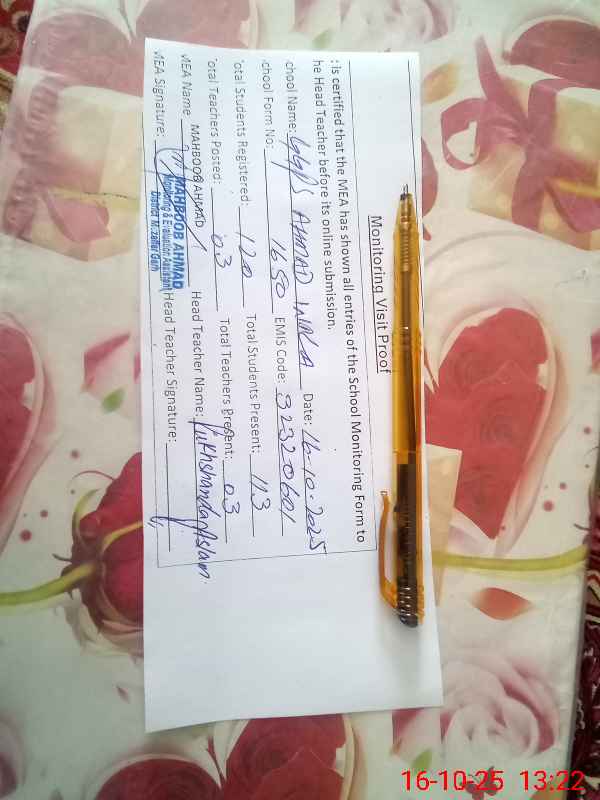 Monitoring Visit Proof
: is certified that the MEA has shown all entries of the School Monitoring Form to
he Head Teacher before its online submission.
chool Name: GGPS AHMAD WALA Date: 16-10-2025
chool Form No: 1650 EMIS Code: 32320601
otal Students Registered: 120 Total Students Present: 113
otal Teachers Posted: 03 Total Teachers Present: 03
MEA Name MAHBOOB AHMAD Head Teacher Name: Rukhshanda Aslam.
MEA Signature: Head Teacher Signature:
MAHBOOB AHMAD
Monitoring & Evaluation Assistant
District Muzaffar Garh
16-10-25 13:22